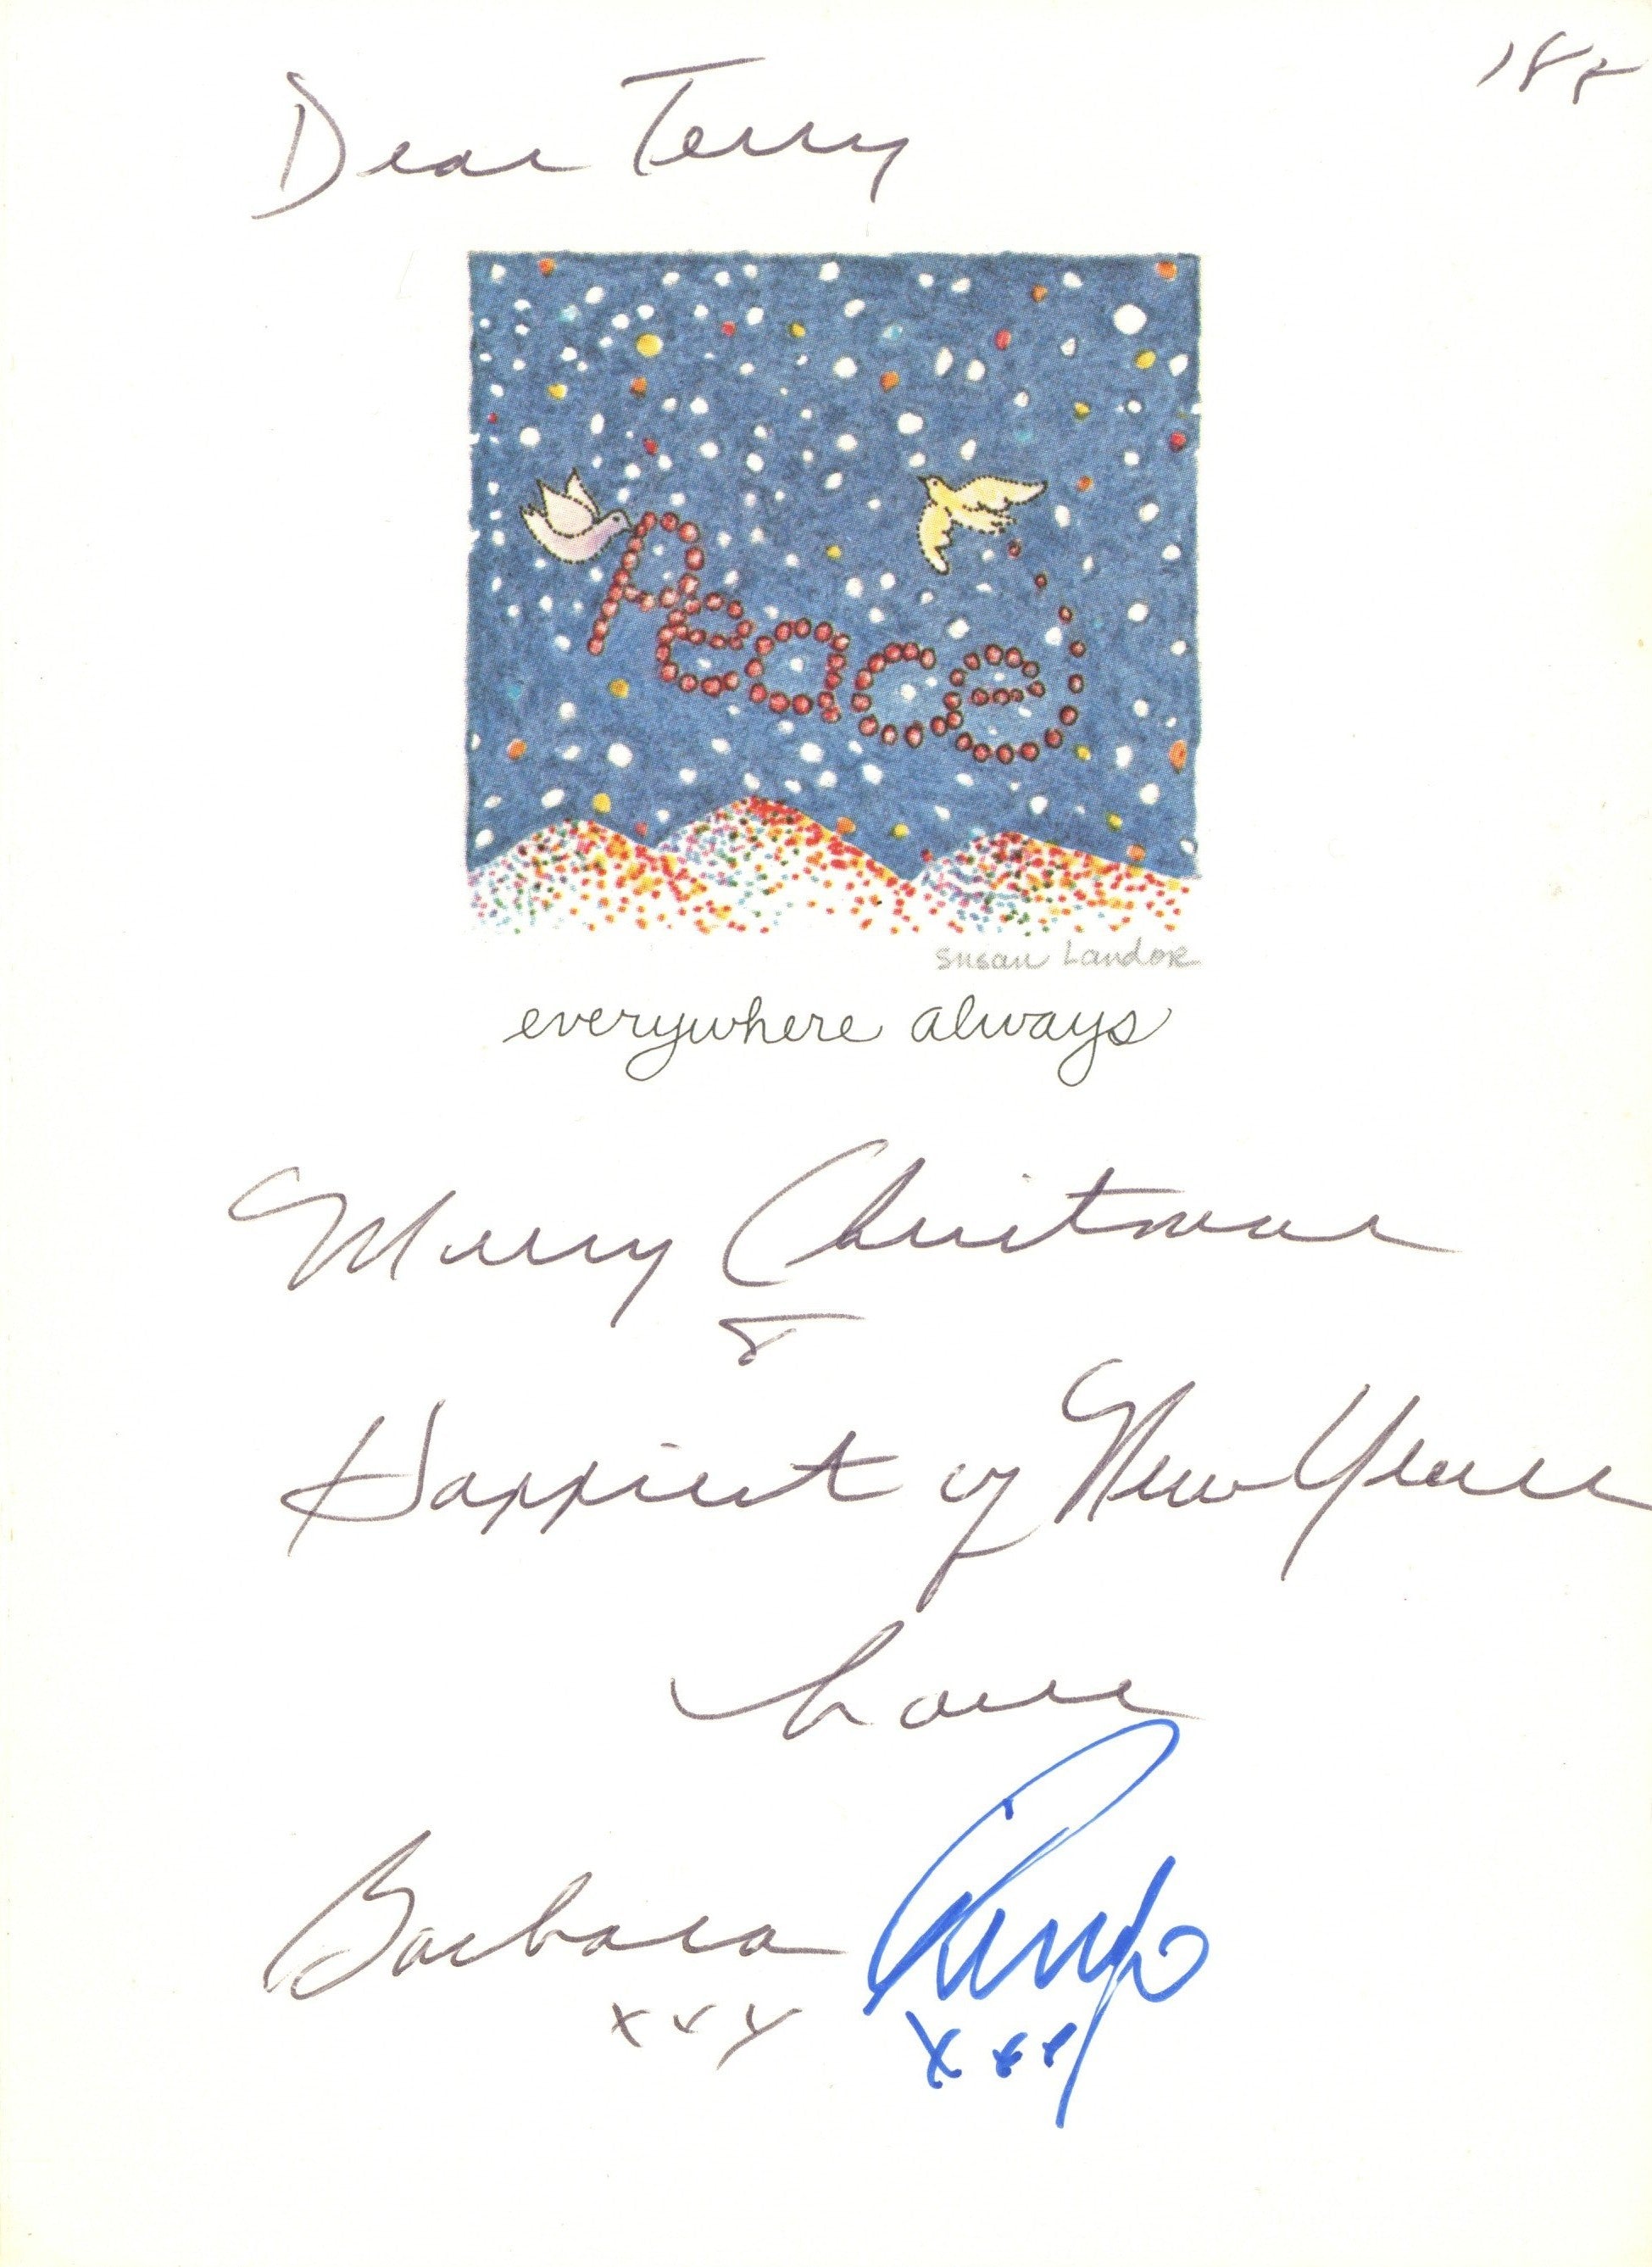 Dear Terry
Peace
Susan Landor
everywhere always
Merry Christmas
&
Happiest of New Years
Love
Barbara Ringo
xxx xxx